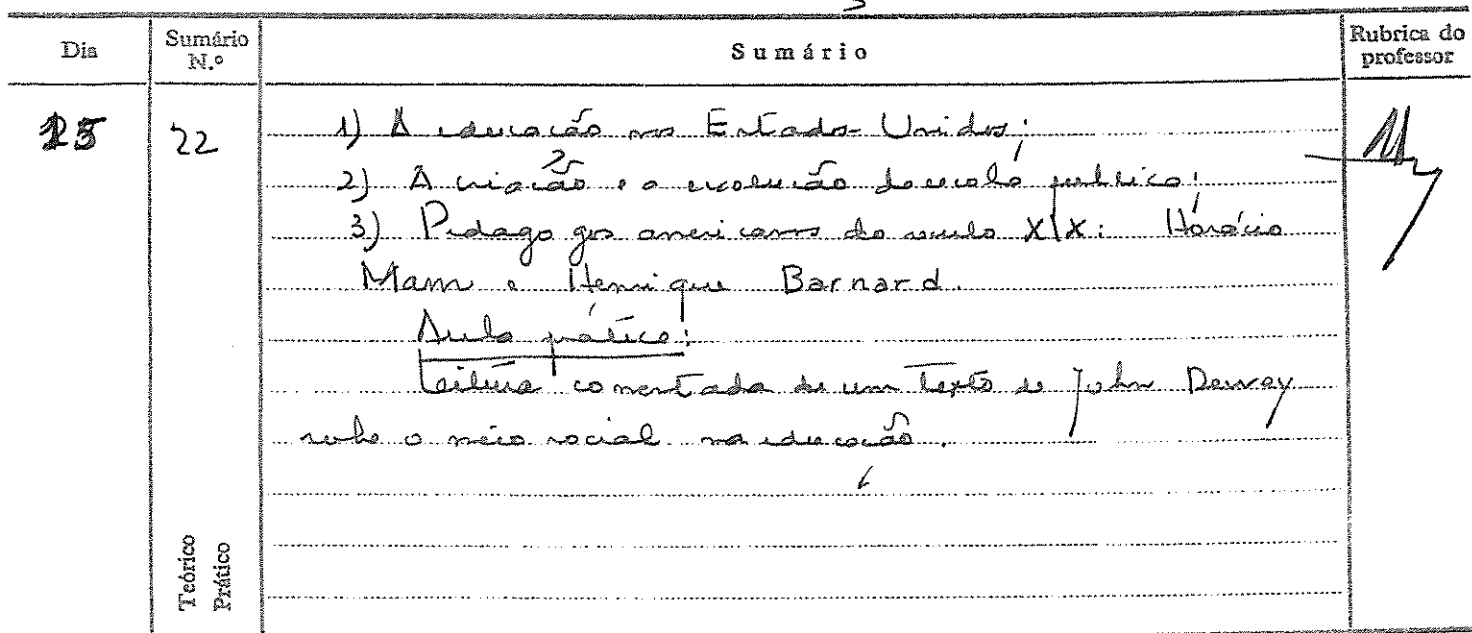 Dia
Sumário N.º
Sumário
Rubrica do professor
25
22
1) A educação nos Estados-Unidos;
2) A criação e a evolução da escola pública;
3) Pedagogos americanos do século XIX: Horácio
Mann e Henrique Barnard.
Aula prática:
Leitura comentada de um texto de John Dewey
sobre o meio social na educação.
Teórico
Prático